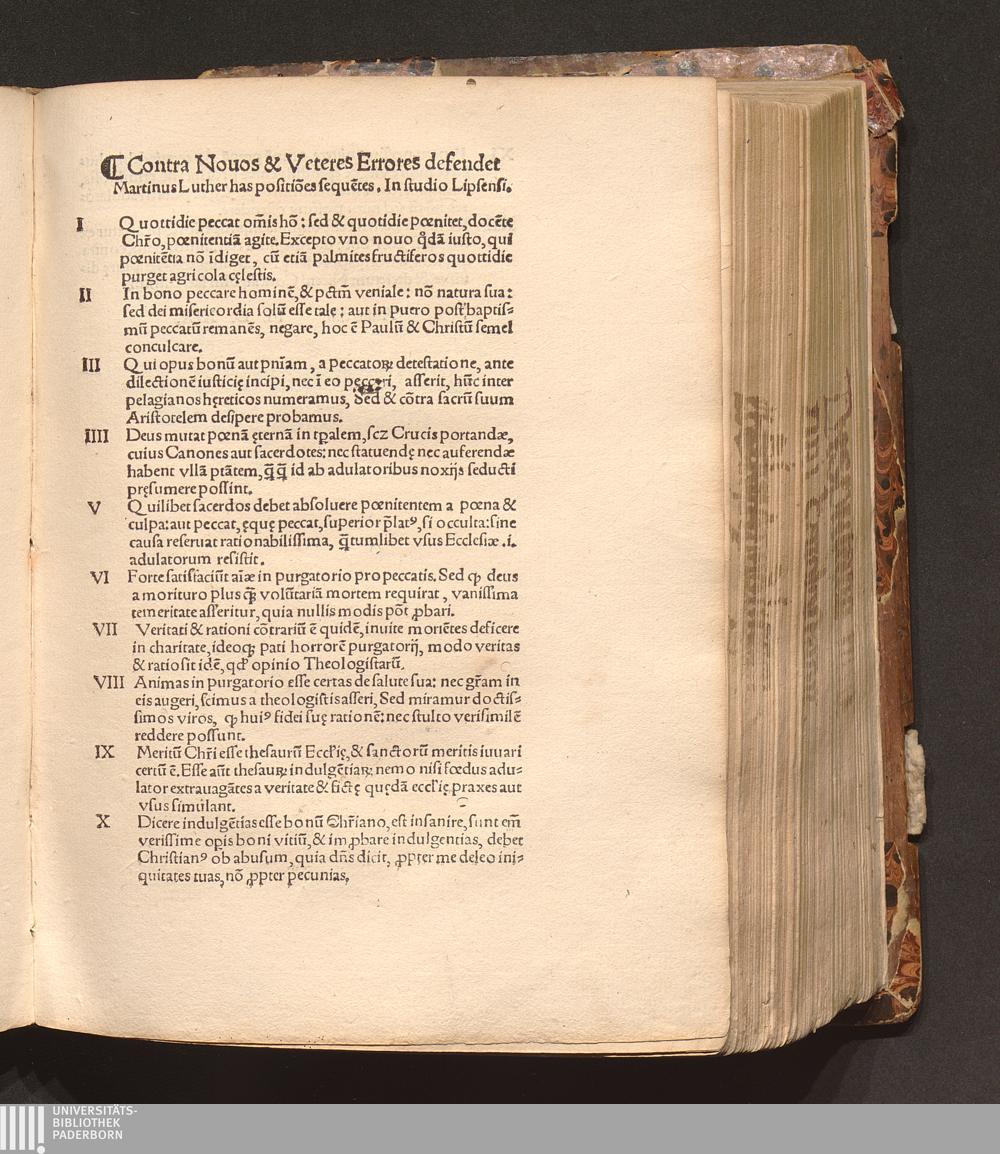 ⁋ Contra Nouos & Veteres Errores defendet
Martinus Luther has positiões sequẽtes. In studio Lipsensi.
I Quottidie peccat om̃is hõ: sed & quotidie pœnitet, docẽte
Chr̃o, pœnitentiã agite. Excepto vno nouo qͦdã iusto, qui
pœnitẽtia nõ ĩdiget, cũ etiã palmites fructiferos quottidie
purget agricola cęlestis.
II In bono peccare hominẽ, & pctm̃ veniale: nõ natura sua:
sed dei misericordia solũ esse tale: aut in puero post baptis⸗
mũ peccatũ remanẽs, negare, hoc ẽ Paulũ & Christũ semel
conculcare.
III Qui opus bonũ aut pnĩam, a peccatorꝝ detestatione, ante
dilectionẽ iusticię incipi, nec ĩ eo peccari, asserit, hũc inter
pelagianos hęreticos numeramus, Sed & cõtra sacrũ suum
Aristotelem desipere probamus.
IIII Deus mutat pœnã ęternã in tp̃alem, scz Crucis portandæ,
cuius Canones aut sacerdotes: nec statuendę nec auferendæ
habent vllã ptãtem, q̃q̃ id ab adulatoribus noxijs seducti
pręsumere possint.
V Quilibet sacerdos debet absoluere pœnitentem a pœna &
culpa: aut peccat, ęque peccat, superior p̃latꝰ, si occulta: sine
causa reseruat rationabilissima, q̃tumlibet vsus Ecclesiæ .i.
adulatorum resistit.
VI Forte satisfaciũt aĩæ in purgatorio pro peccatis. Sed ꝙ deus
a morituro plus q̃ꝫ volũtariã mortem requirat, vanissima
temeritate asseritur, quia nullis modis põt ꝓbari.
VII Veritati & rationi cõtrariũ ẽ quidẽ, inuite moriẽtes deficere
in charitate, ideoqꝫ pati horrorẽ purgatorij, modo veritas
& ratio sit idẽ, qd̃ opinio Theologistarũ.
VIII Animas in purgatorio esse certas de salute sua: nec gr̃am in
eis augeri, scimus a theologistis asseri, Sed miramur doctis⸗
simos viros, ꝙ huiꝰ fidei suę rationẽ: nec stulto verisimilẽ
reddere possunt.
IX Meritũ Chr̃i esse thesaurũ Eccl̃ię, & sanctorũ meritis iuuari
certũ ẽ. Esse aũt thesaurꝝ indulgẽtiarꝝ nemo nisi fœdus adu⸗
lator extrauagãtes a veritate & fictę quędã eccl̃ię praxes aut
vsus simulant.
X Dicere indulgẽtias esse bonũ Chr̃iano, est insanire, sunt em̃
verissime op̃is boni vitiũ, & imꝓbare indulgentias, debet
Christianꝰ ob abusum, quia dñs dicit, ꝓpter me deleo ini⸗
quitates tuas, nõ ꝓpter pecunias,
UNIVERSITÄTS-
BIBLIOTHEK
PADERBORN